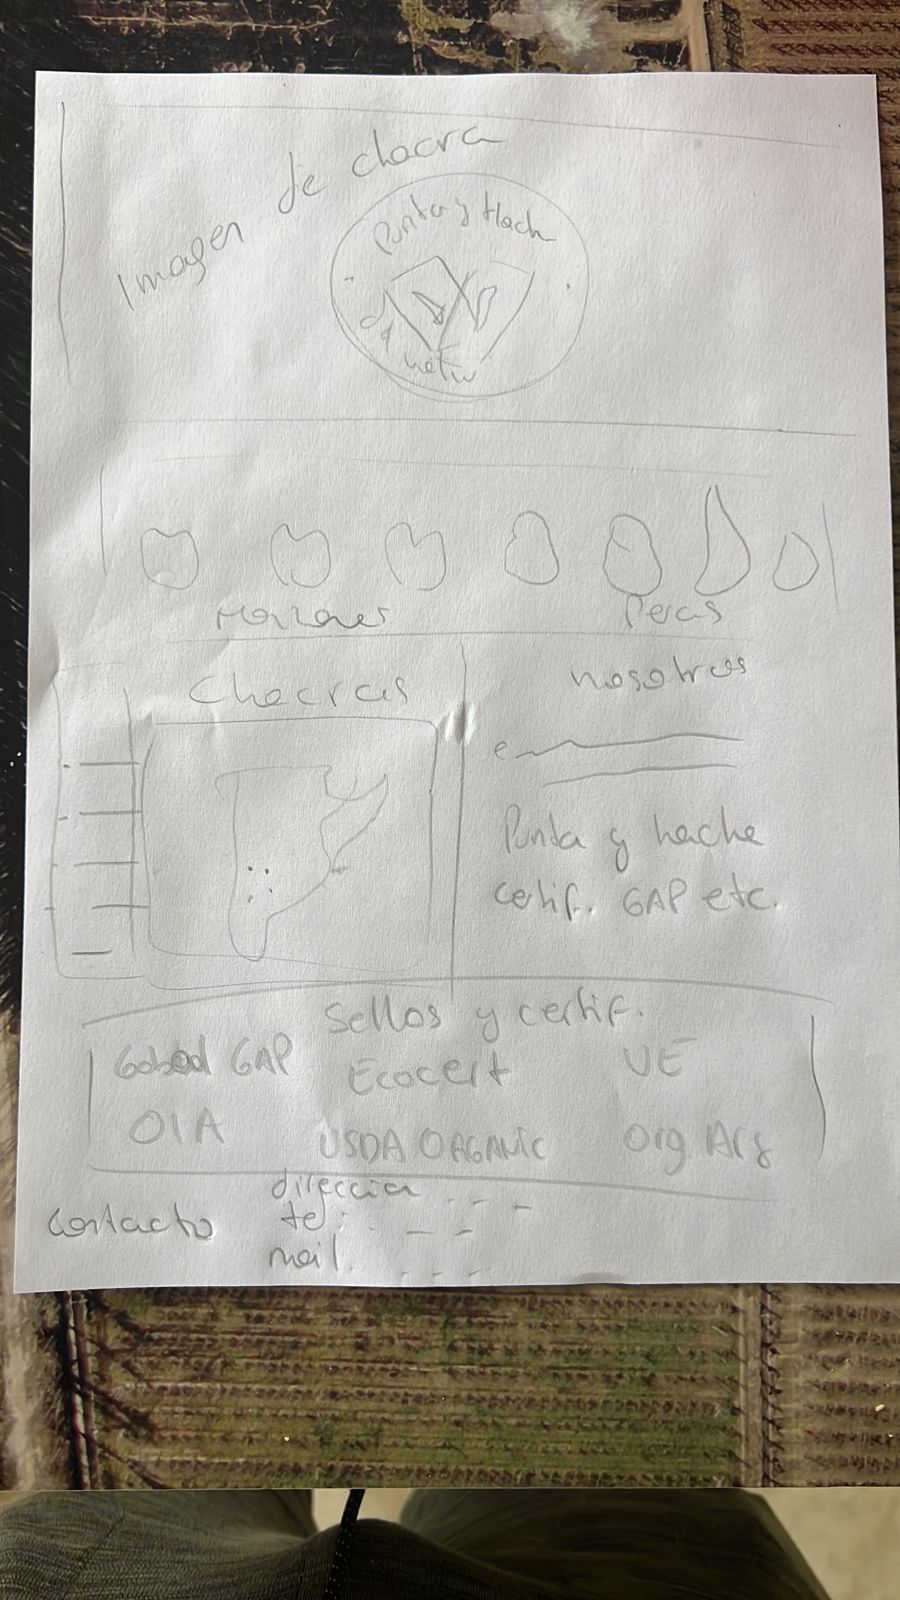 Imagen de chacra
Punta y Hach
Manzanas
Peras
Chacras
nosotros
Punta y hache
certif. GAP etc.
Sellos y certif.
GAP
Ecocert
UE
OIA
USDA ORGANIC
Org Arg
Contacto
direccion
tel:
mail.